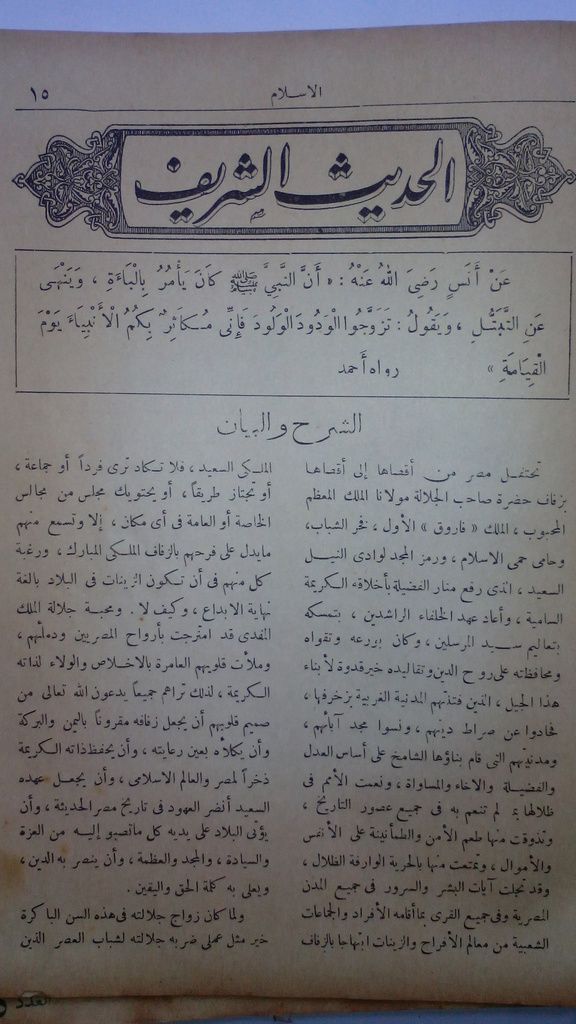 الاسلام
١٥
الحديث الشريف
عَنْ أَنَسٍ رَضِىَ اللهُ عَنْهُ : « أَنَّ النَّبِيَّ ﷺ كَانَ يَأْمُرُ بِالْبَاءَةِ ، وَيَنْهَى
عَنِ التَّبَتُّلِ ، وَيَقُولُ : تَزَوَّجُوا الْوَدُودَ الْوَلُودَ فَإِنِّى مُكَاثِرٌ بِكُمُ الْأَنْبِيَاءَ يَوْمَ
الْقِيَامَةِ » رواه أحمد
الشرح والبيان
تحتفل مصر من أقصاها إلى أقصاها
بزفاف حضرة صاحب الجلالة مولانا الملك المعظم
المحبوب ، الملك « فاروق » الأول ، فخر الشباب ،
وحامى حمى الاسلام ، ورمز المجد لوادى النيل
السعيد ، الذى رفع منار الفضيلة بأخلاقه الكريمة
السامية ، وأعاد عهد الخلفاء الراشدين ، بتمسكه
بتعاليم سيد المرسلين ، وكان بورعه وتقواه
ومحافظته على روح الدين وتقاليده خير قدوة لأبناء
هذا الجيل ، الذين فتنتهم المدنية الغربية بزخرفها ،
فحادوا عن صراط دينهم ، ونسوا مجد آبائهم ،
ومدنيتهم التى قام بناؤها الشامخ على أساس العدل
والفضيلة والاخاء والمساواة ، ونعمت الأمم فى
ظلالها بما لم تنعم به فى جميع عصور التاريخ ،
وتذوقت منها طعم الأمن والطمأنينة على الأنفس
والأموال ، وتمتعت منها بالحرية الوارفة الظلال ،
وقد تجلت آيات البشر والسرور فى جميع المدن
المصرية وفى جميع القرى بما أقامه الأفراد والجماعات
الشعبية من معالم الأفراح والزينات ابتهاجا بالزفاف
الملكى السعيد ، فلا تكاد ترى فرداً أو جماعة ،
أو تجتاز طريقاً ، أو يحتويك مجلس من مجالس
الخاصة أو العامة فى أى مكان ، إلا وتسمع منهم
مايدل على فرحهم بالزفاف الملكى المبارك ، ورغبة
كل منهم فى أن تكون الزينات فى البلاد بالغة
نهاية الابداع ، وكيف لا . ومحبة جلالة الملك
المفدى قد امتزجت بأرواح المصريين ودمائهم ،
وملأت قلوبهم العامرة بالاخلاص والولاء لذاته
الكريمة ، لذلك تراهم جميعاً يدعون الله تعالى من
صميم قلوبهم أن يجعل زفافه مقروناً باليمن والبركة
وأن يكلأه بعين رعايته ، وأن يحفظ ذاته الكريمة
ذخراً لمصر والعالم الاسلامى ، وأن يجعل عهده
السعيد أنضر العهود فى تاريخ مصر الحديثة ، وأن
يؤتى البلاد على يديه كل ماتصبو إليه من العزة
والسيادة ، والمجد والعظمة ، وأن ينصر به الدين ،
ويعلى به كلمة الحق واليقين .
ولما كان زواج جلالته فى هذه السن الباكرة
خير مثل عملى ضربه جلالته لشباب العصر الذين
العدد